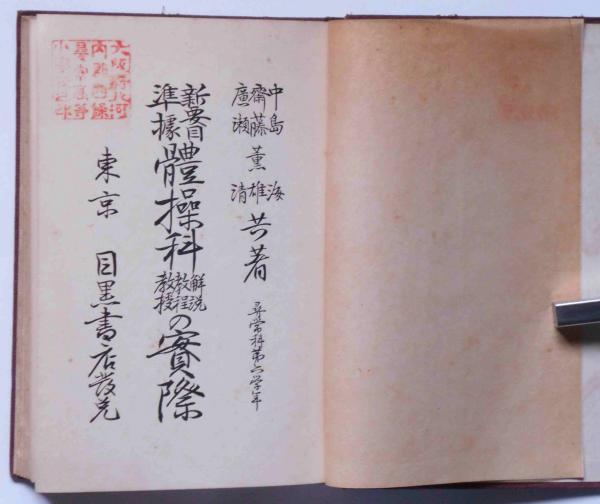 中島 海
齋藤 薫雄
廣瀬 清
共著
尋常科第六学年
新要目
準據
體操科
解説
教程
教授
の實際
東京 目黒書店發兌
大阪府北河